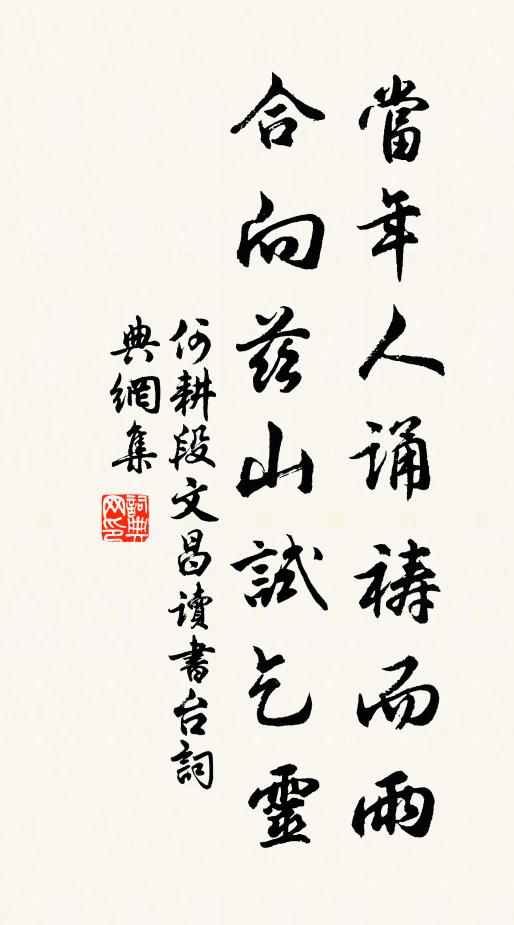 當年人誦祷而雨
合向茲山試乞靈
何耕段文昌讀書台詞
典網集
詞典网印